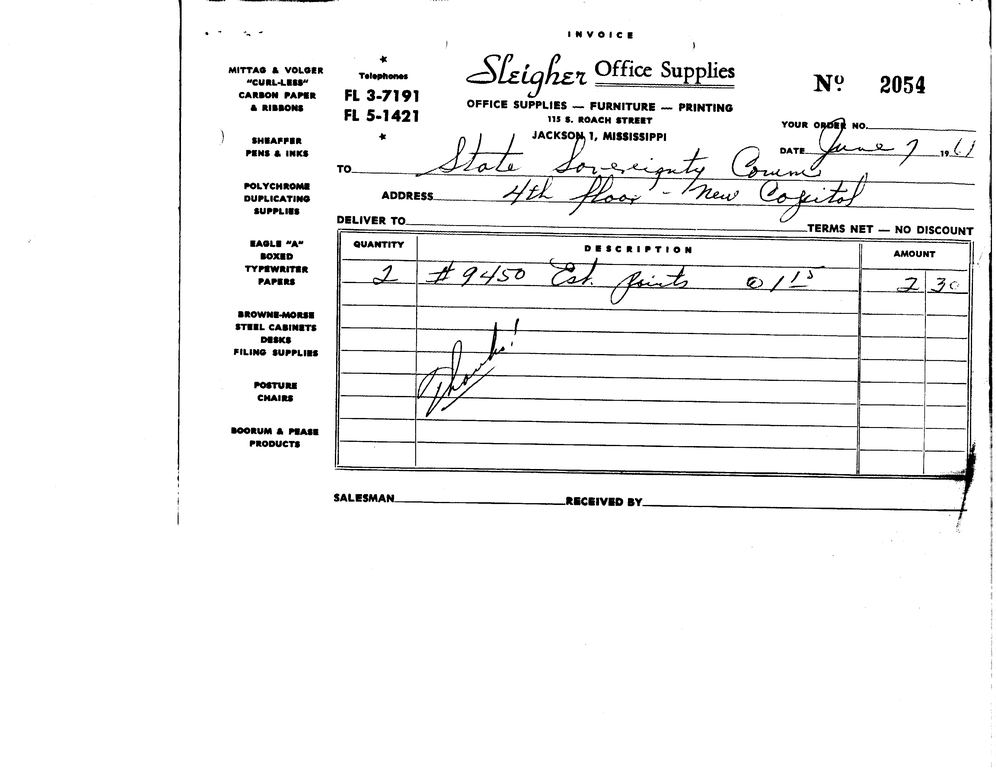 INVOICE
MITTAG & VOLGER
"CURL-LESS"
CARBON PAPER
& RIBBONS
SHEAFFER
PENS & INKS
POLYCHROME
DUPLICATING
SUPPLIES
EAGLE "A"
BOXED
TYPEWRITER
PAPERS
BROWNE-MORSE
STEEL CABINETS
DESKS
FILING SUPPLIES
POSTURE
CHAIRS
BOORUM & PEASE
PRODUCTS
Telephones
FL 3-7191
FL 5-1421
Sleigher Office Supplies
OFFICE SUPPLIES — FURNITURE — PRINTING
115 S. ROACH STREET
JACKSON 1, MISSISSIPPI
Nº 2054
YOUR ORDER NO.
DATE June 7 1961
TO State Sovereignty Comm
ADDRESS 4th floor - New Capitol
DELIVER TO
TERMS NET — NO DISCOUNT
QUANTITY DESCRIPTION AMOUNT
2 #9450 Est. Points @ 1 15 2 30
Thanks!
SALESMAN RECEIVED BY